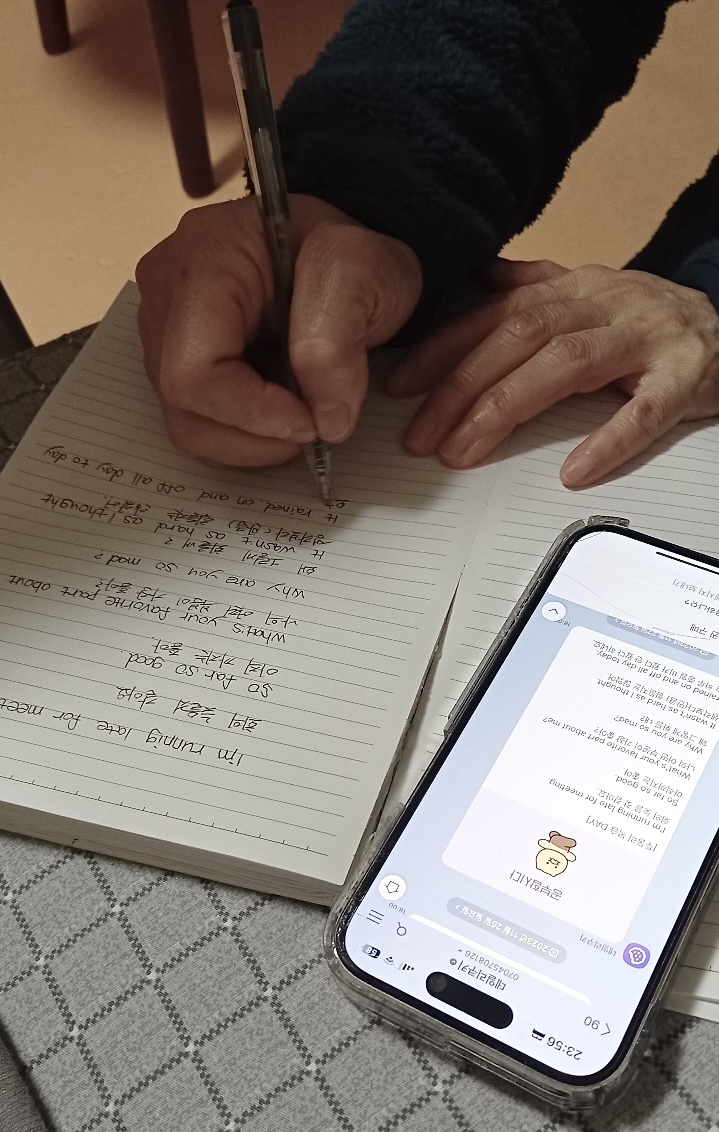 I'm running late for meet
회의 늦을거 같아요
So far so good.
아직 까지는 좋아.
What's your favorite part about
나의 어떤 부분이 가장 좋아?
Why are you so mad?
왜 그렇게 화를 내?
It wasn't as hard as I thought
생각보다 (민큼) 힘들지는 않았어.
It rained on and off all day to day
23:56
90
데일리쿠키
07045708126
2023년 11월 26일 일요일
데일리쿠키
공부합시다
I'm running late for meeting
회의 늦을 것 같아요.
So far so good.
아직까지는 좋아.
What's your favorite part about me?
나의 어떤 부분이 가장 좋아?
Why are you so mad?
왜 그렇게 화를 내?
It wasn't as hard as I thought
rained on and off all day today.